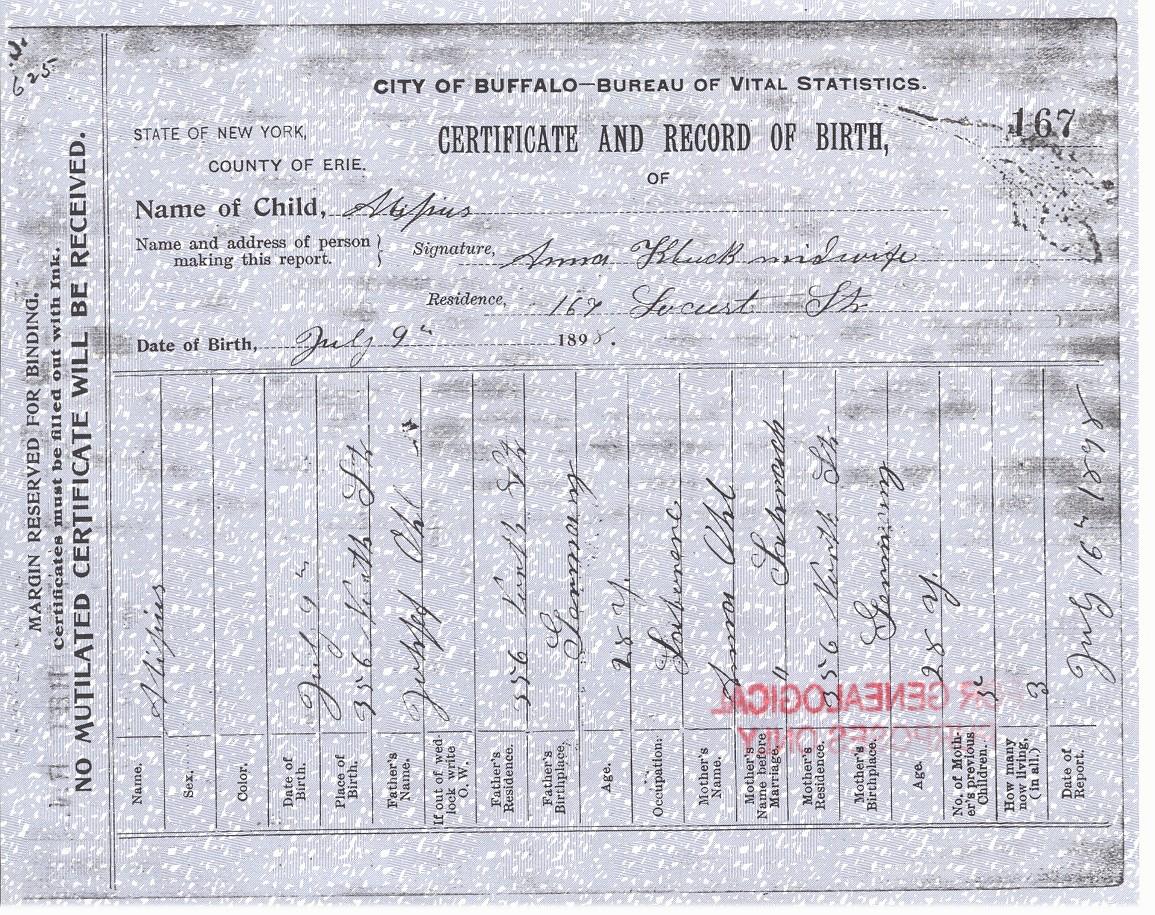 625
CITY OF BUFFALO—BUREAU OF VITAL STATISTICS.
STATE OF NEW YORK,
COUNTY OF ERIE.
CERTIFICATE AND RECORD OF BIRTH,
167
OF
Name of Child,
Name and address of person making this report.
Signature, Anna midwife
Residence, 167 Locust St
Date of Birth, July 9th 1898.
MARGIN RESERVED FOR BINDING.
Certificates must be filled out with Ink.
NO MUTILATED CERTIFICATE WILL BE RECEIVED.
Name.
Sex,
Color.
Date of Birth. July 9th
Place of Birth. 356 St
Father's Name. Ohl
If out of wedlock write O. W.
Father's Residence. 356 St
Father's Birthplace. Germany
Age. 28 y.
Occupation:
Mother's Name. Anna Ohl
Mother's Name before Marriage. "
Mother's Residence. 356 St
Mother's Birthplace. Germany
Age. 28 y.
No. of Mother's previous Children.
How many now living, (in all.) 3
Date of Report. July 16th 1898
FOR GENEALOGICAL
PURPOSES ONLY